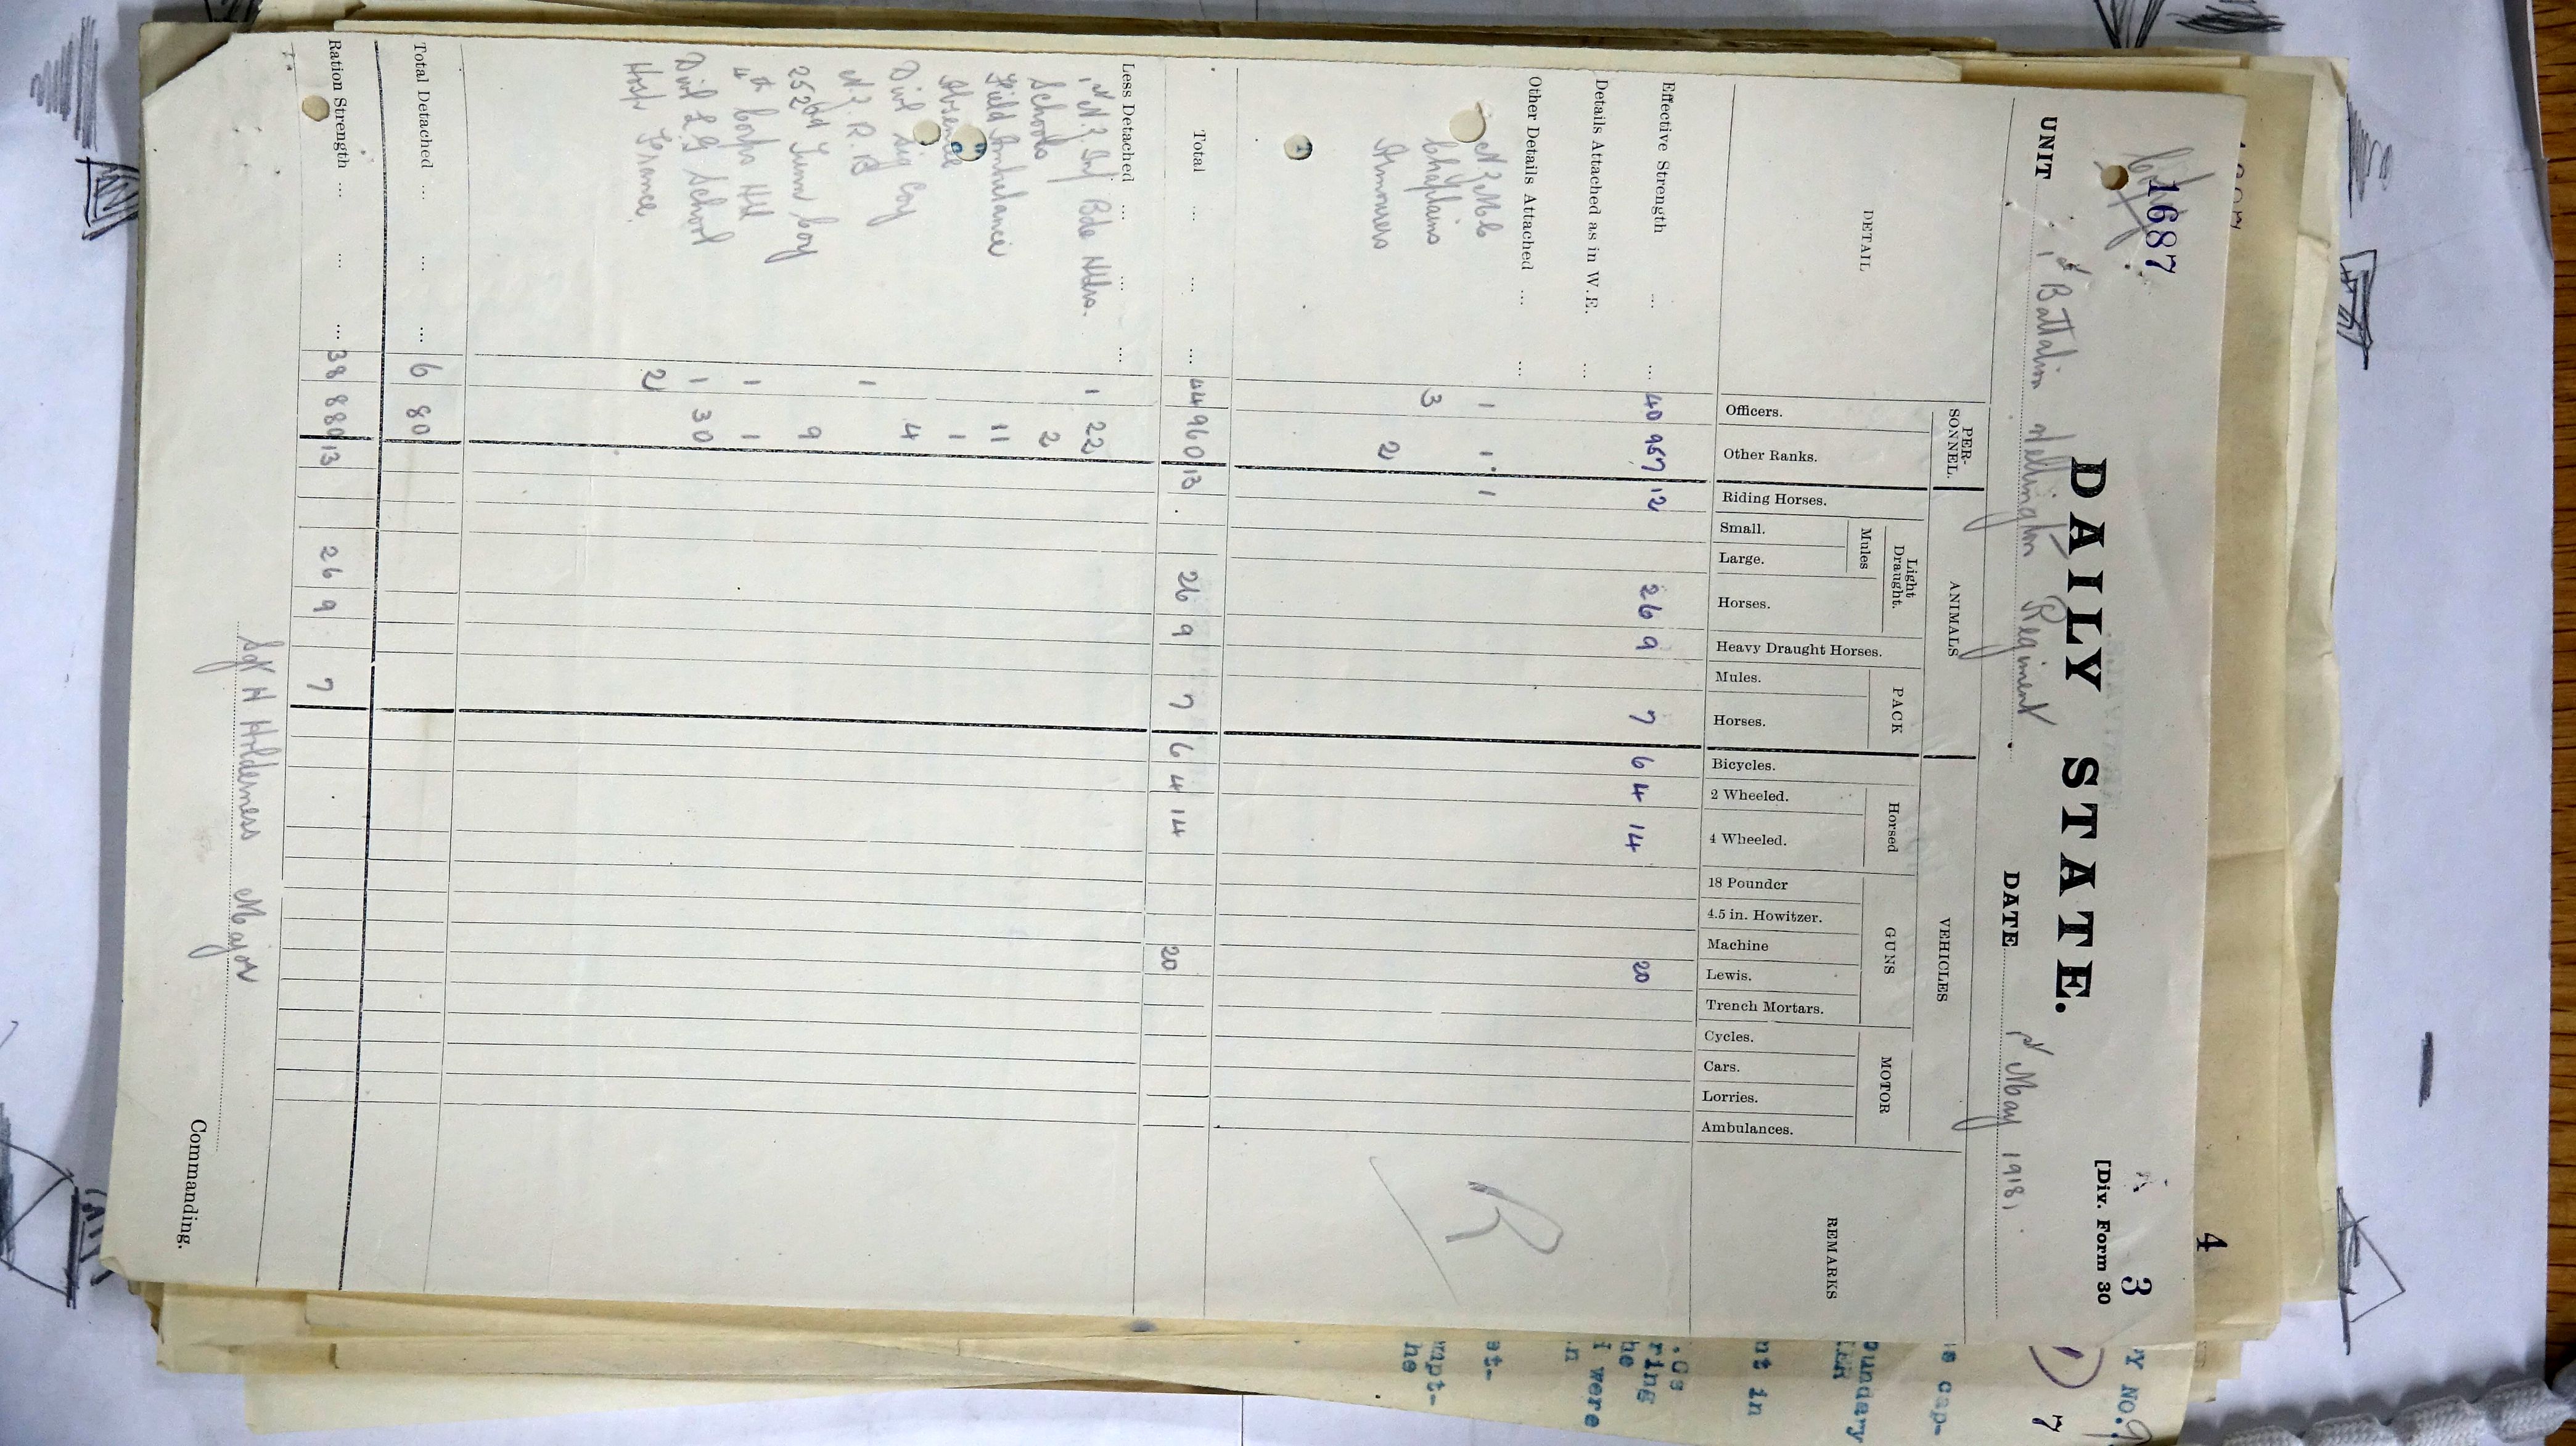 1687
3
4
Copy
DAILY STATE.
[Div. Form 30
UNIT 1st Battalion Wellington Regiment DATE 1st May 1918
DETAIL
PER-SONNEL.
ANIMALS
VEHICLES
REMARKS
Officers.
Other Ranks.
Riding Horses.
Light Draught.
Mules
Small.
Large.
Horses.
Heavy Draught Horses.
PACK
Mules.
Horses.
Bicycles.
Horsed
2 Wheeled.
4 Wheeled.
GUNS
18 Pounder
4.5 in. Howitzer.
Machine
Lewis.
Trench Mortars.
MOTOR
Cycles.
Cars.
Lorries.
Ambulances.
Effective Strength ... ... 40 957 12 26 9 7 6 4 14 20
Details Attached as in W.E. ...
Other Details Attached ... ...
N.Z.M.C 1 1 1
Chaplains 3
Armourers 2
R
Total ... ... ... 44 960 13 26 9 7 6 4 14 20
Less Detached ... ... ...
1st N.Z. Inf Bde Hdqrs. 1 22
Schools 2
Field Ambulance 11
Absence 1
Div Sig Coy 4
N.Z.R.B 1
252nd Tunn Coy 9
4th Corps HQ 1 1
Divl L.G School 1 30
Hosp France. 2
Total Detached ... ... ... 6 80
Ration Strength ... ... ... 38 880 13 26 9 7
Sgd H Holderness Major
Commanding.
Y NO. 9
7
s cap-
oundary
nt in
.Cs
ring
he
I were
n
at-
mpt-
he